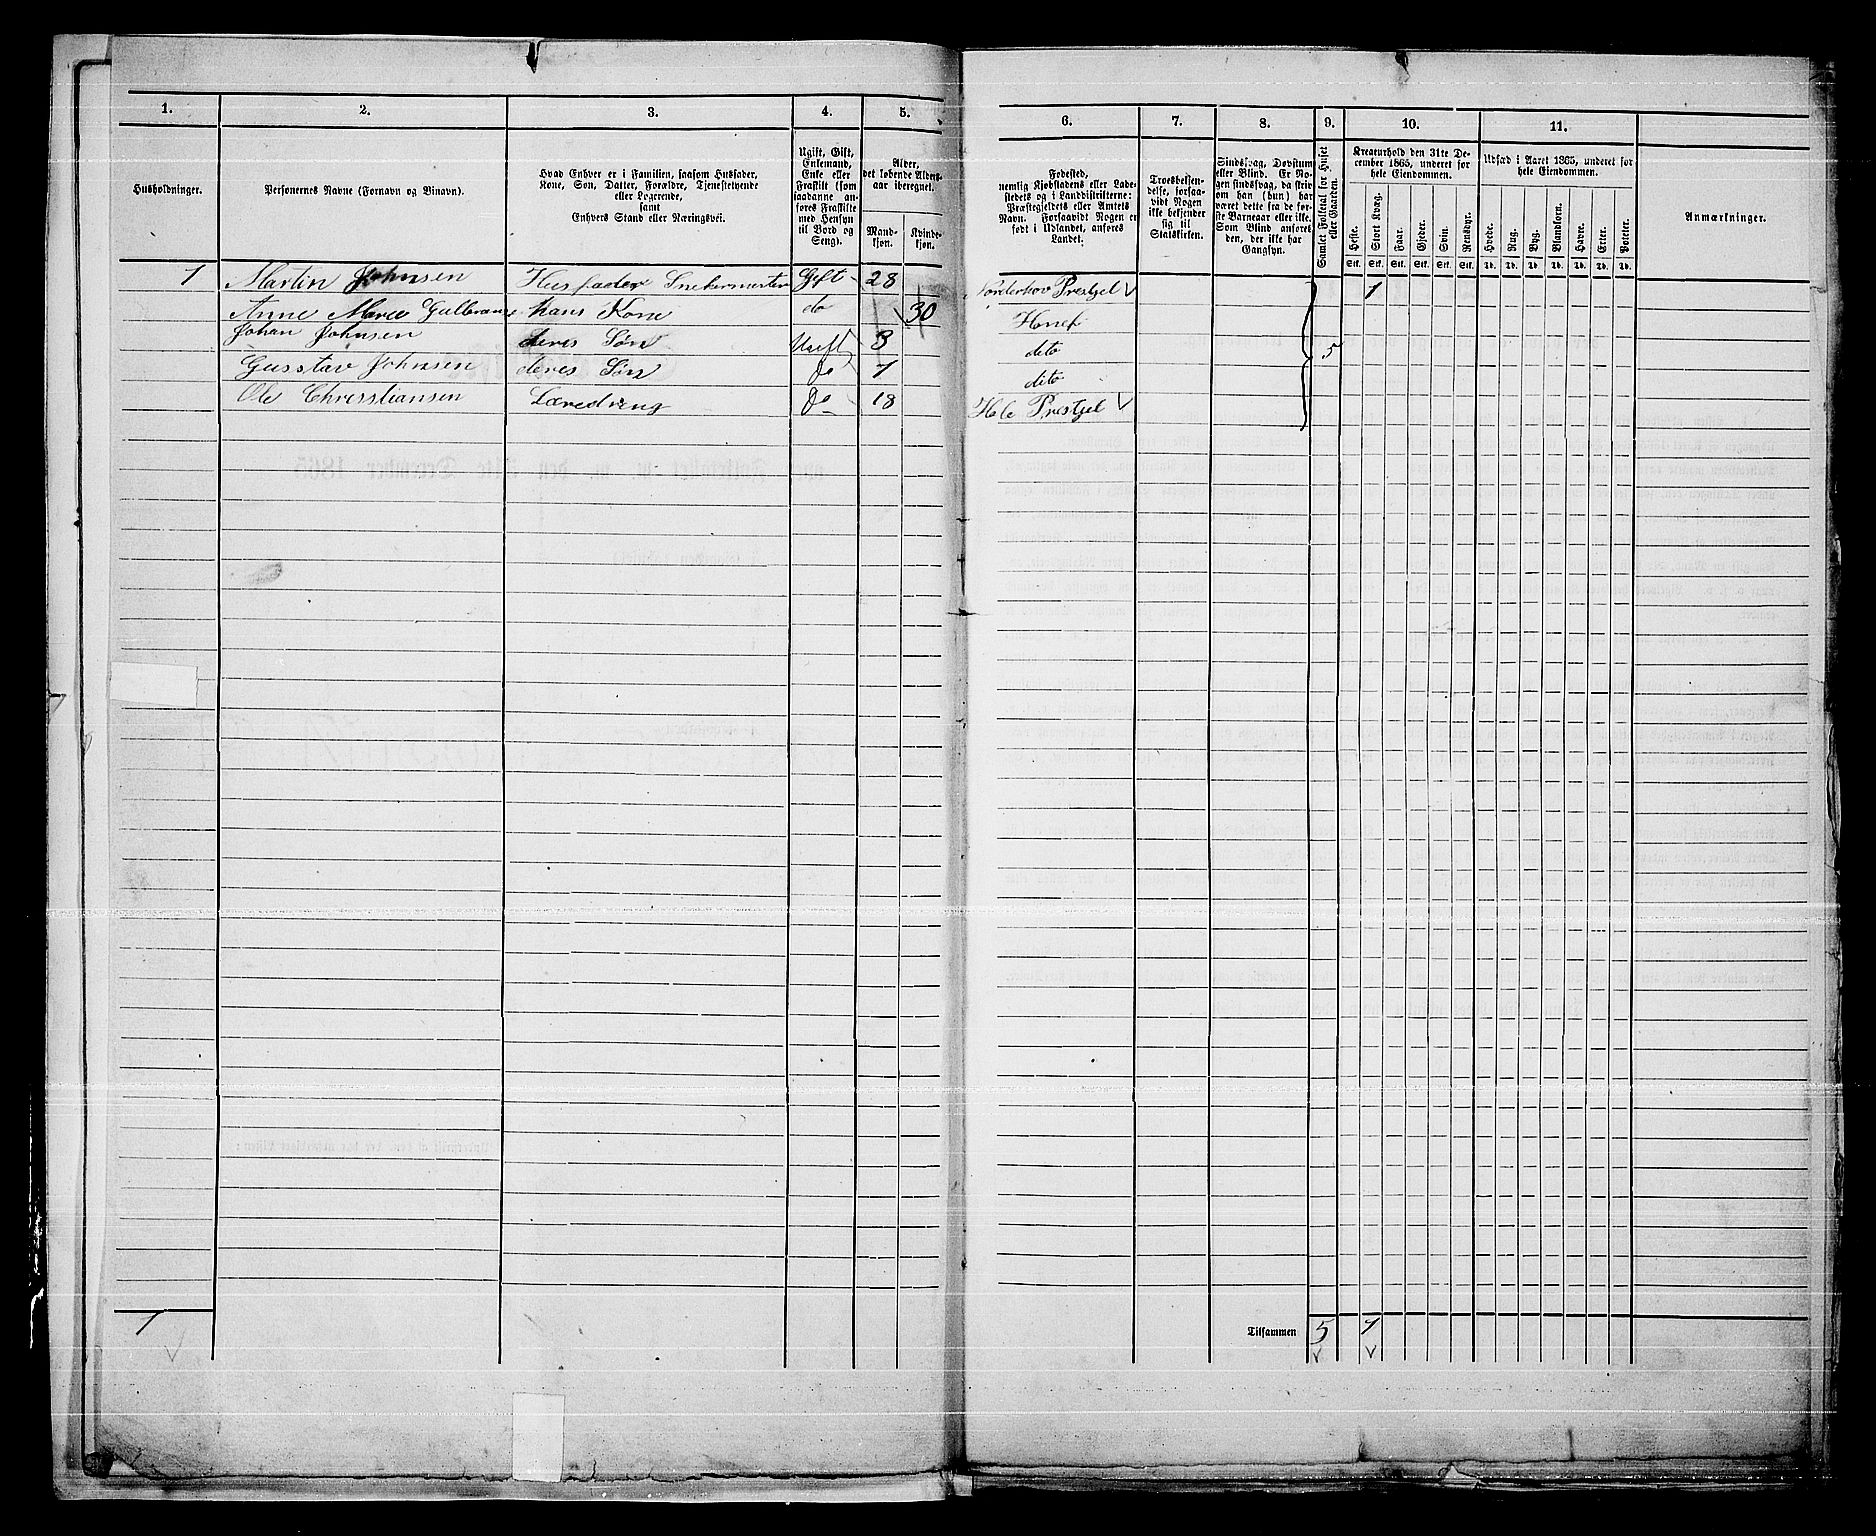 1.
2.
3.
4.
5.
6.
7.
8.
9.
10.
11.
Husholdninger.
Personernes Navne (Fornavn og Binavn).
Hvad Enhver er i Familien, saasom Husfader,
Kone, Søn, Datter, Forældre, Tjenestetyende
eller Logerende,
samt
Enhvers Stand eller Næringsvei.
Ugift, Gift,
Enkemand,
Enke eller
Fraskilt (som
saadanne an-
føres Fraskilte
med Hensyn
til Bord og
Seng).
Alder,
det løbende Alders-
aar iberegnet.
Mand-
kjøn.
Kvinde-
kjøn.
Fødested,
nemlig Kjøbstadens eller Lade-
stedets og i Landdistrikterne:
Præstegjeldets eller Amtets
Navn. Forsaavidt Nogen er
født i Udlandet, anføres
Landet.
Troesbekjen-
delse, forsaa-
vidt Nogen
ikke bekjender
sig til
Statskirken.
Sindssvag, Døvstum
eller Blind. Er No-
gen sindssvag, da skriv
om han (hun) har
været dette fra de før-
ste Barneaar eller ikke.
Som Blind anføres
den, der ikke har
Gangsyn.
Samlet Folketal for Huset
eller Gaarden.
Kreaturhold den 31te De-
cember 1865, underet for
hele Eiendommen.
Heste. Stort Kvæg. Faar. Gjeder. Svin. Rensdyr.
Stk. Stk. Stk. Stk. Stk. Stk.
Udsæd i Aaret 1865, underet for
hele Eiendommen.
Hvede. Rug. Byg. Blandkorn. Havre. Erter. Poteter.
Td. Td. Td. Td. Td. Td. Td.
Anmærkninger.
1 Martin Johnsen Husfader Snekermester Gift 28 Norderhov Prestgel 1
Anne Marea Gulbrans hans Kone do 30 Honef
Johan Johnsen deres Søn Ugift 3 dito 5
Gusstav Johnsen deres Søn Do 1 dito
Ole Chresstiansen Læredreng Do 18 Hole Prestgel
1
Tilsammen 5 1